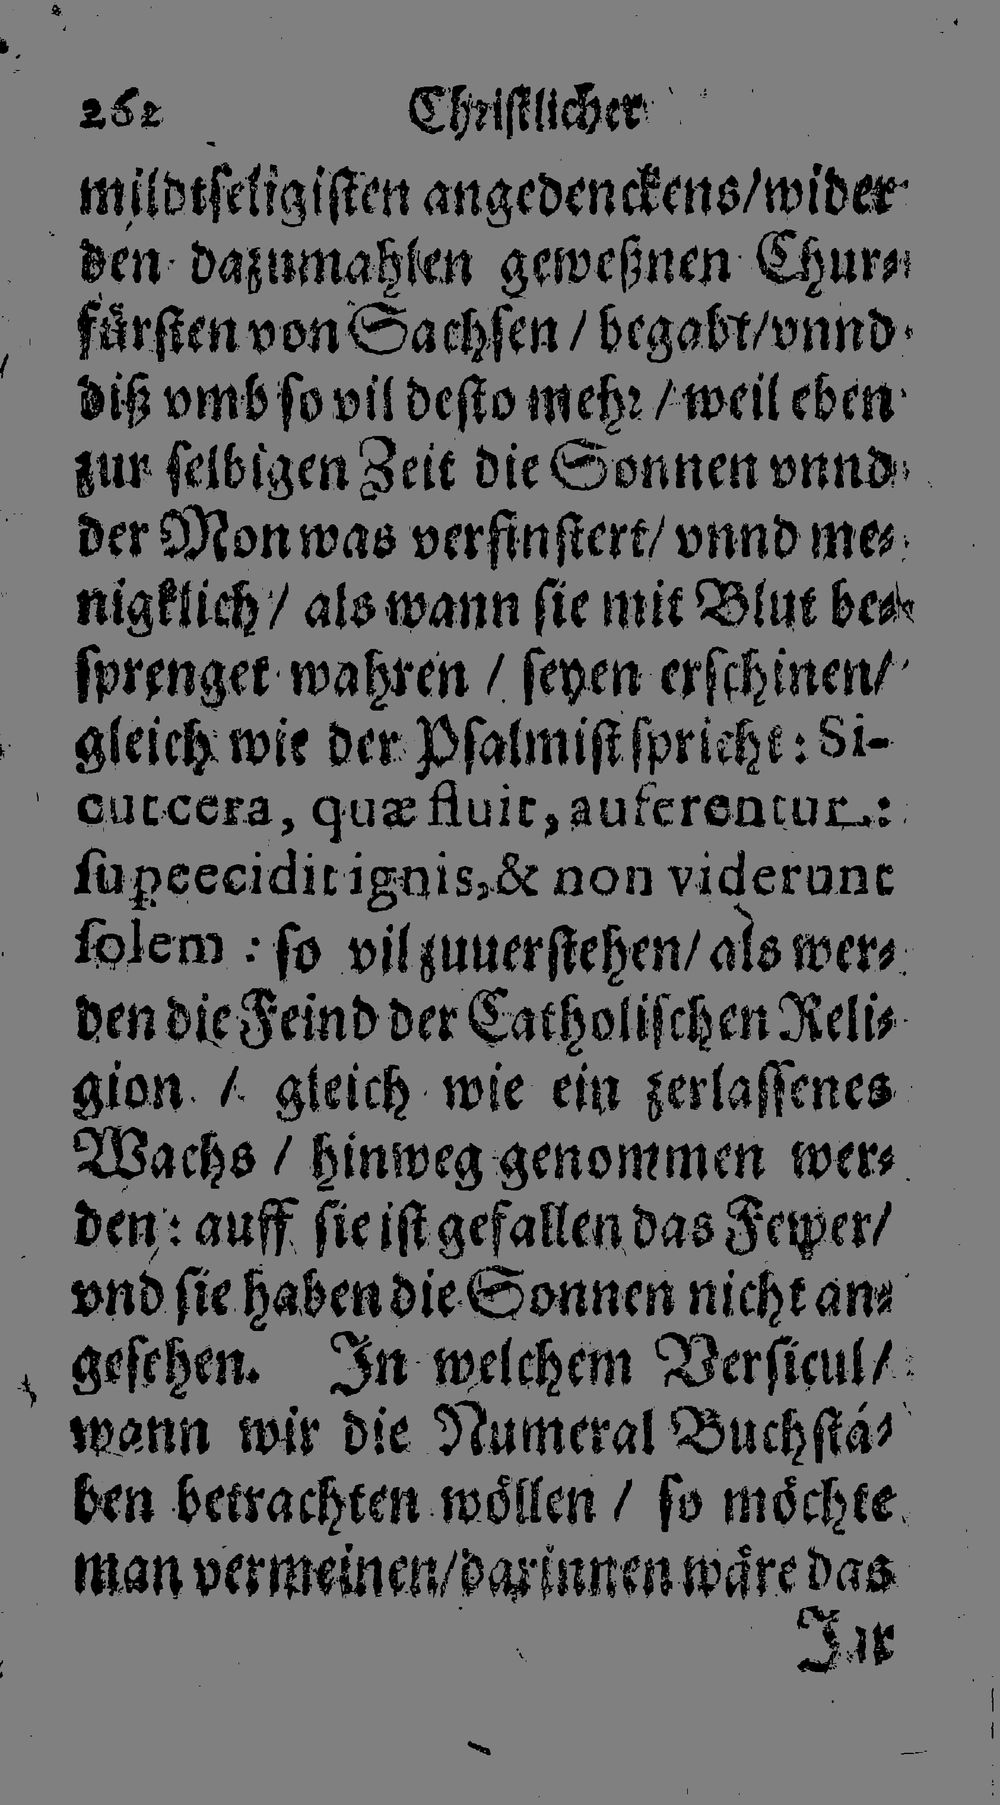 262 Christlicher
mildtseligisten angedenckens/wider
den dazumahlen geweßnen Chur-
fürsten von Sachsen / begabt/vnnd
diß vmb so vil desto mehr / weil eben
zur selbigen Zeit die Sonnen vnnd
der Mon was verfinstert/ vnnd me-
nigklich / als wann sie mit Blut be-
sprenget wahren / seyen erschinen/
gleich wie der Psalmist spricht: Si-
cut cera, quæ fluit, auferentur:
supcecidit ignis, & non viderunt
solem : so vil zuuerstehen/ als wer-
den die Feind der Catholischen Reli-
gion / gleich wie ein zerlassenes
Wachs / hinweg genommen wer-
den : auff sie ist gefallen das Fewer/
vnd sie haben die Sonnen nicht an-
gesehen. In welchem Versicul/
wann wir die Numeral Buchstä-
ben betrachten wöllen / so möchte
man vermeinen/darinnen wäre das